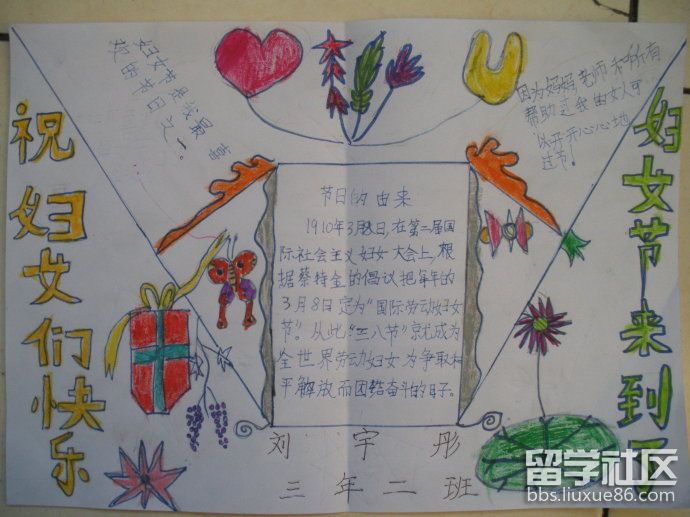 祝妇女们快乐
妇女节是我最喜
欢的节日之一。
因为妈妈老师和所有
帮助过我的女人可
以开开心心地
过节！
妇女节来到了
节日的由来
1910年3月8日，在第二届国
际社会主义妇女大会上，根
据蔡特金的倡议把每年的
3月8日定为“国际劳动妇女
节”。从此“三八节”就成为
全世界劳动妇女为争取和
平解放而团结奋斗的日子。
刘宇彤
三年二班
留学社区
bbs.liuxue86.com